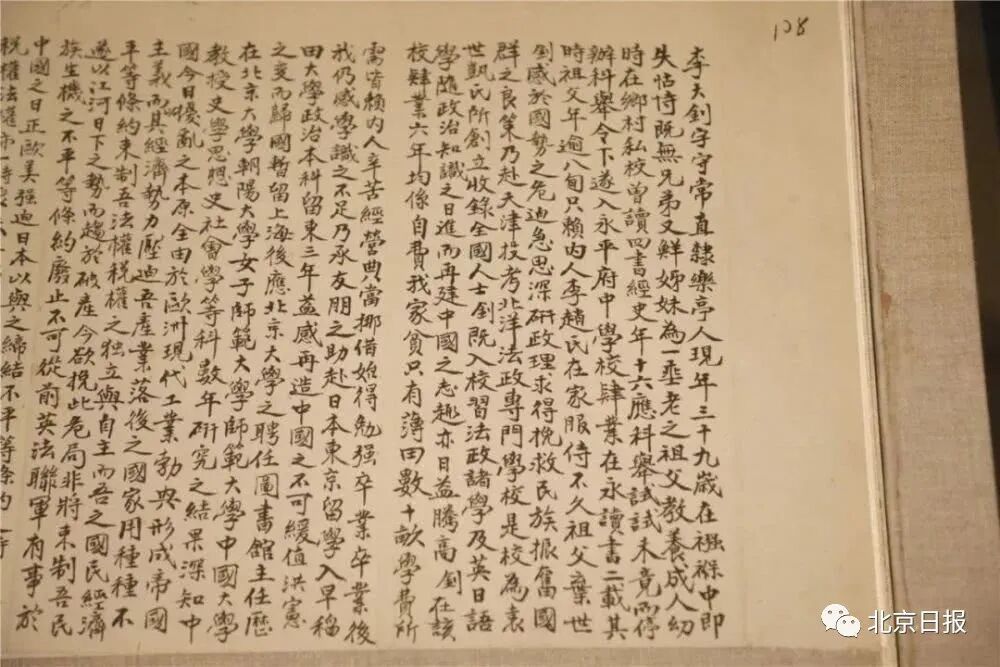 128
李大釗字守常直隸樂亭人現年三十九歲在襁褓中即
失怙恃既無兄弟又鮮姊妹為一垂老之祖父教養成人幼
時在鄉村私校曾讀四書經史年十六應科舉試試未竟而停
辦科舉令下遂入永平府中學校肄業在永讀書二載其
時祖父年逾八旬只賴內人李趙氏在家服侍不久祖父棄世
釗感於國勢之危迫急思深研政理求得挽救民族振奮國
群之良策乃赴天津投考北洋法政專門學校是校為袁
世凱氏所創立收錄全國人士釗既入校習法政諸學及英日語
學隨政治知識之日進而再建中國之志趣亦日益騰高釗在該
校肄業六年均係自費我家貧只有薄田數十畝學費所
需皆賴內人辛苦經營典當挪借始得勉強卒業卒業後
我仍感學識之不足乃承友朋之助赴日本東京留學入早稻
田大學政治本科留東三年益感再造中國之不可緩值洪憲
之變而歸國暫留上海後應北京大學之聘任圖書館主任歷
在北京大學朝陽大學女子師範大學師範大學中國大學
教授史學思想史社會學等科數年研究之結果深知中
國今日擾亂之本原全由於歐洲現代工業勃興形成帝國
主義而其經濟勢力壓迫吾產業落後之國家用種種不
平等條約束制吾法權稅權之獨立與自主而吾之國民經濟
遂以江河日下之勢而趨於破產今欲挽此危局非將束制吾民
族生機之不平等條約廢止不可從前英法聯軍有事於
中國之日正歐美強迫日本以與之締結不平等條約之
稅權法權
北京日报